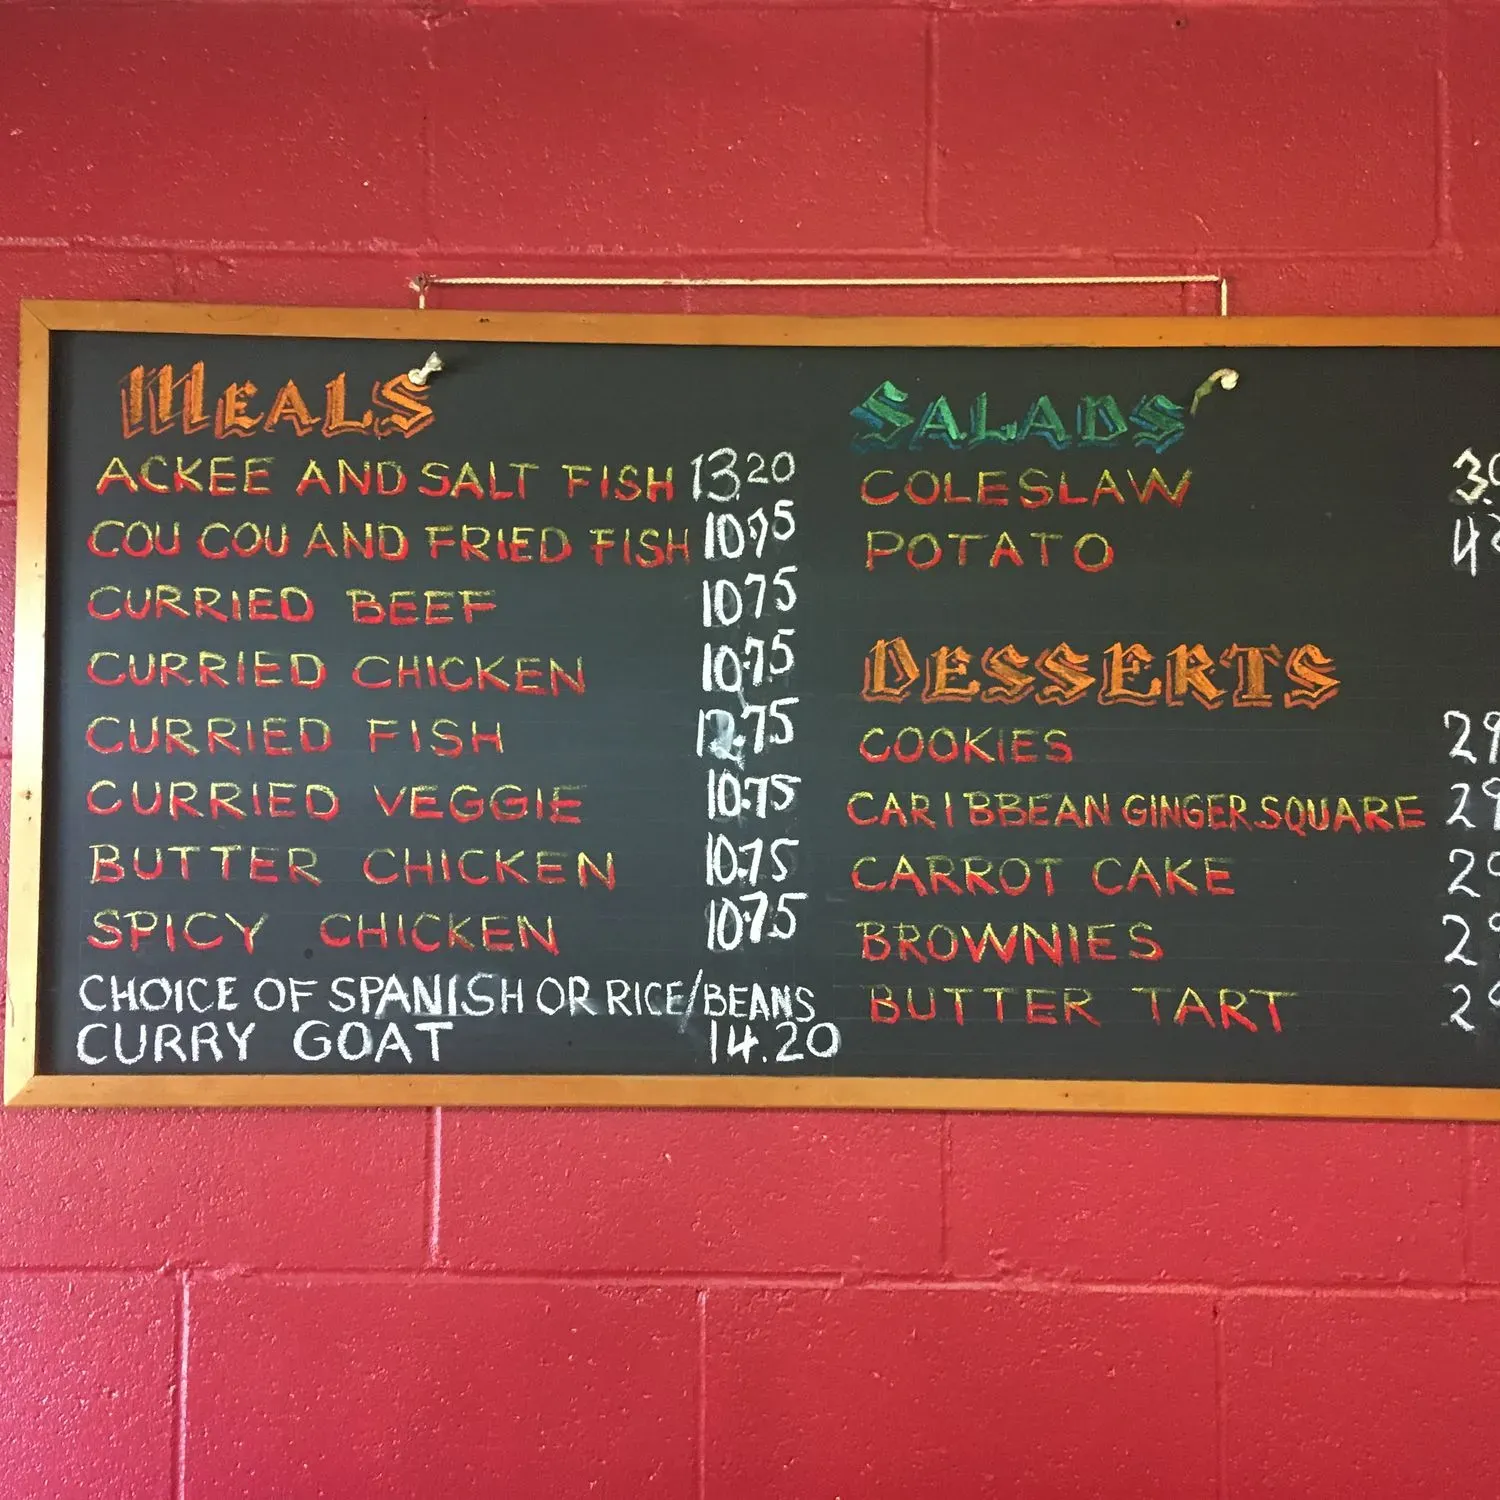 MEALS
ACKEE AND SALT FISH 13.20
COU COU AND FRIED FISH 10.75
CURRIED BEEF 10.75
CURRIED CHICKEN 10.75
CURRIED FISH 12.75
CURRIED VEGGIE 10.75
BUTTER CHICKEN 10.75
SPICY CHICKEN 10.75
CHOICE OF SPANISH OR RICE/BEANS
CURRY GOAT 14.20
SALADS
COLESLAW
POTATO
DESSERTS
COOKIES
CARIBBEAN GINGER SQUARE
CARROT CAKE
BROWNIES
BUTTER TART